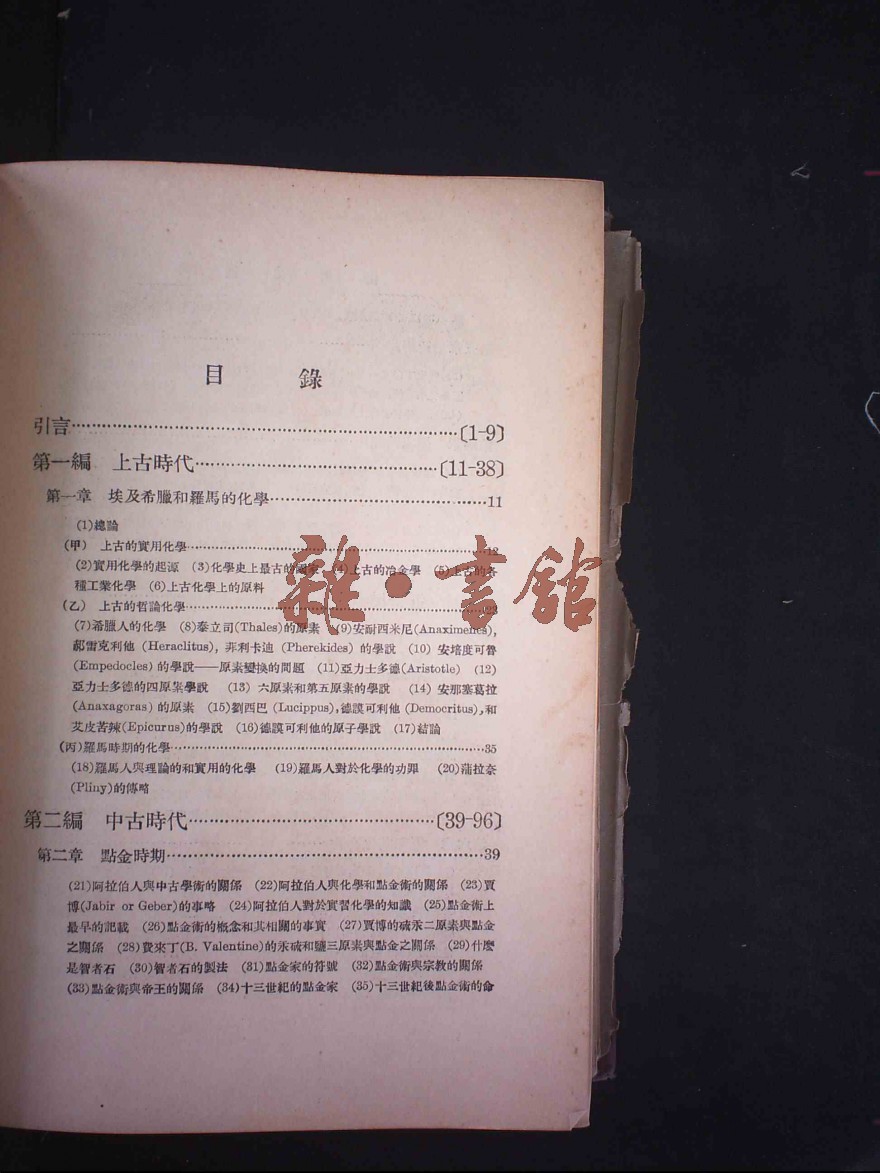 目 錄
引言……〔1-9〕
第一編 上古時代……〔11-38〕
第一章 埃及希臘和羅馬的化學……11
(1)總論
(甲) 上古的實用化學……12
(2)實用化學的起源 (3)化學史上最古的國家 (4)上古的冶金學 (5)上古的各
種工業化學 (6)上古化學上的原料
(乙) 上古的哲論化學……23
(7)希臘人的化學 (8)泰立司(Thales)的原素 (9)安耐西米尼(Anaximenes),
郝雷克利他 (Heraclitus), 菲利卡迪 (Pherekides) 的學說 (10) 安培度可魯
(Empedocles) 的學說——原素變換的問題 (11)亞力士多德(Aristotle) (12)
亞力士多德的四原素學說 (13) 六原素和第五原素的學說 (14) 安那塞葛拉
(Anaxagoras) 的原素 (15)劉西巴 (Lucippus),德謨可利他 (Democritus),和
艾皮苦辣(Epicurus)的學說 (16)德謨可利他的原子學說 (17)結論
(丙)羅馬時期的化學……35
(18)羅馬人與理論的和實用的化學 (19)羅馬人對於化學的功罪 (20)蒲拉奈
(Pliny)的傳略
第二編 中古時代……〔39-96〕
第二章 點金時期……39
(21)阿拉伯人與中古學術的關係 (22)阿拉伯人與化學和點金術的關係 (23)賈
博(Jabir or Geber)的事略 (24)阿拉伯人對於實習化學的知識 (25)點金術上
最早的記載 (26)點金術的概念和其相關的事實 (27)賈博的硫汞二原素與點金
之關係 (28)費來丁(B. Valentine)的汞硫和鹽三原素與點金之關係 (29)什麼
是智者石 (30)智者石的製法 (31)點金家的符號 (32)點金術與宗教的關係
(33)點金術與帝王的關係 (34)十三世紀的點金家 (35)十三世紀後點金術的命
雜·書館